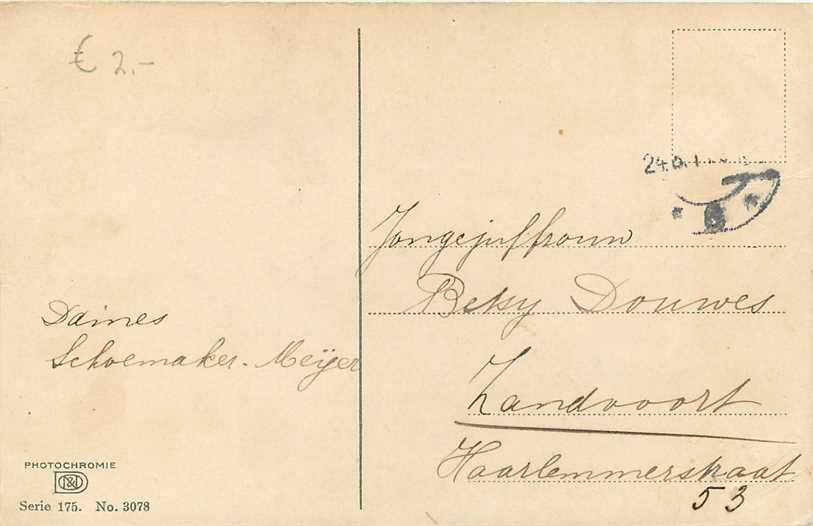 € 2.-
24.5.1
Jongejuffrouw
Betsy Douwes
Zandvoort
Haarlemmerstraat
53
Dames
Schoemaker-Meijer
PHOTOCHROMIE
Serie 175. No. 3078